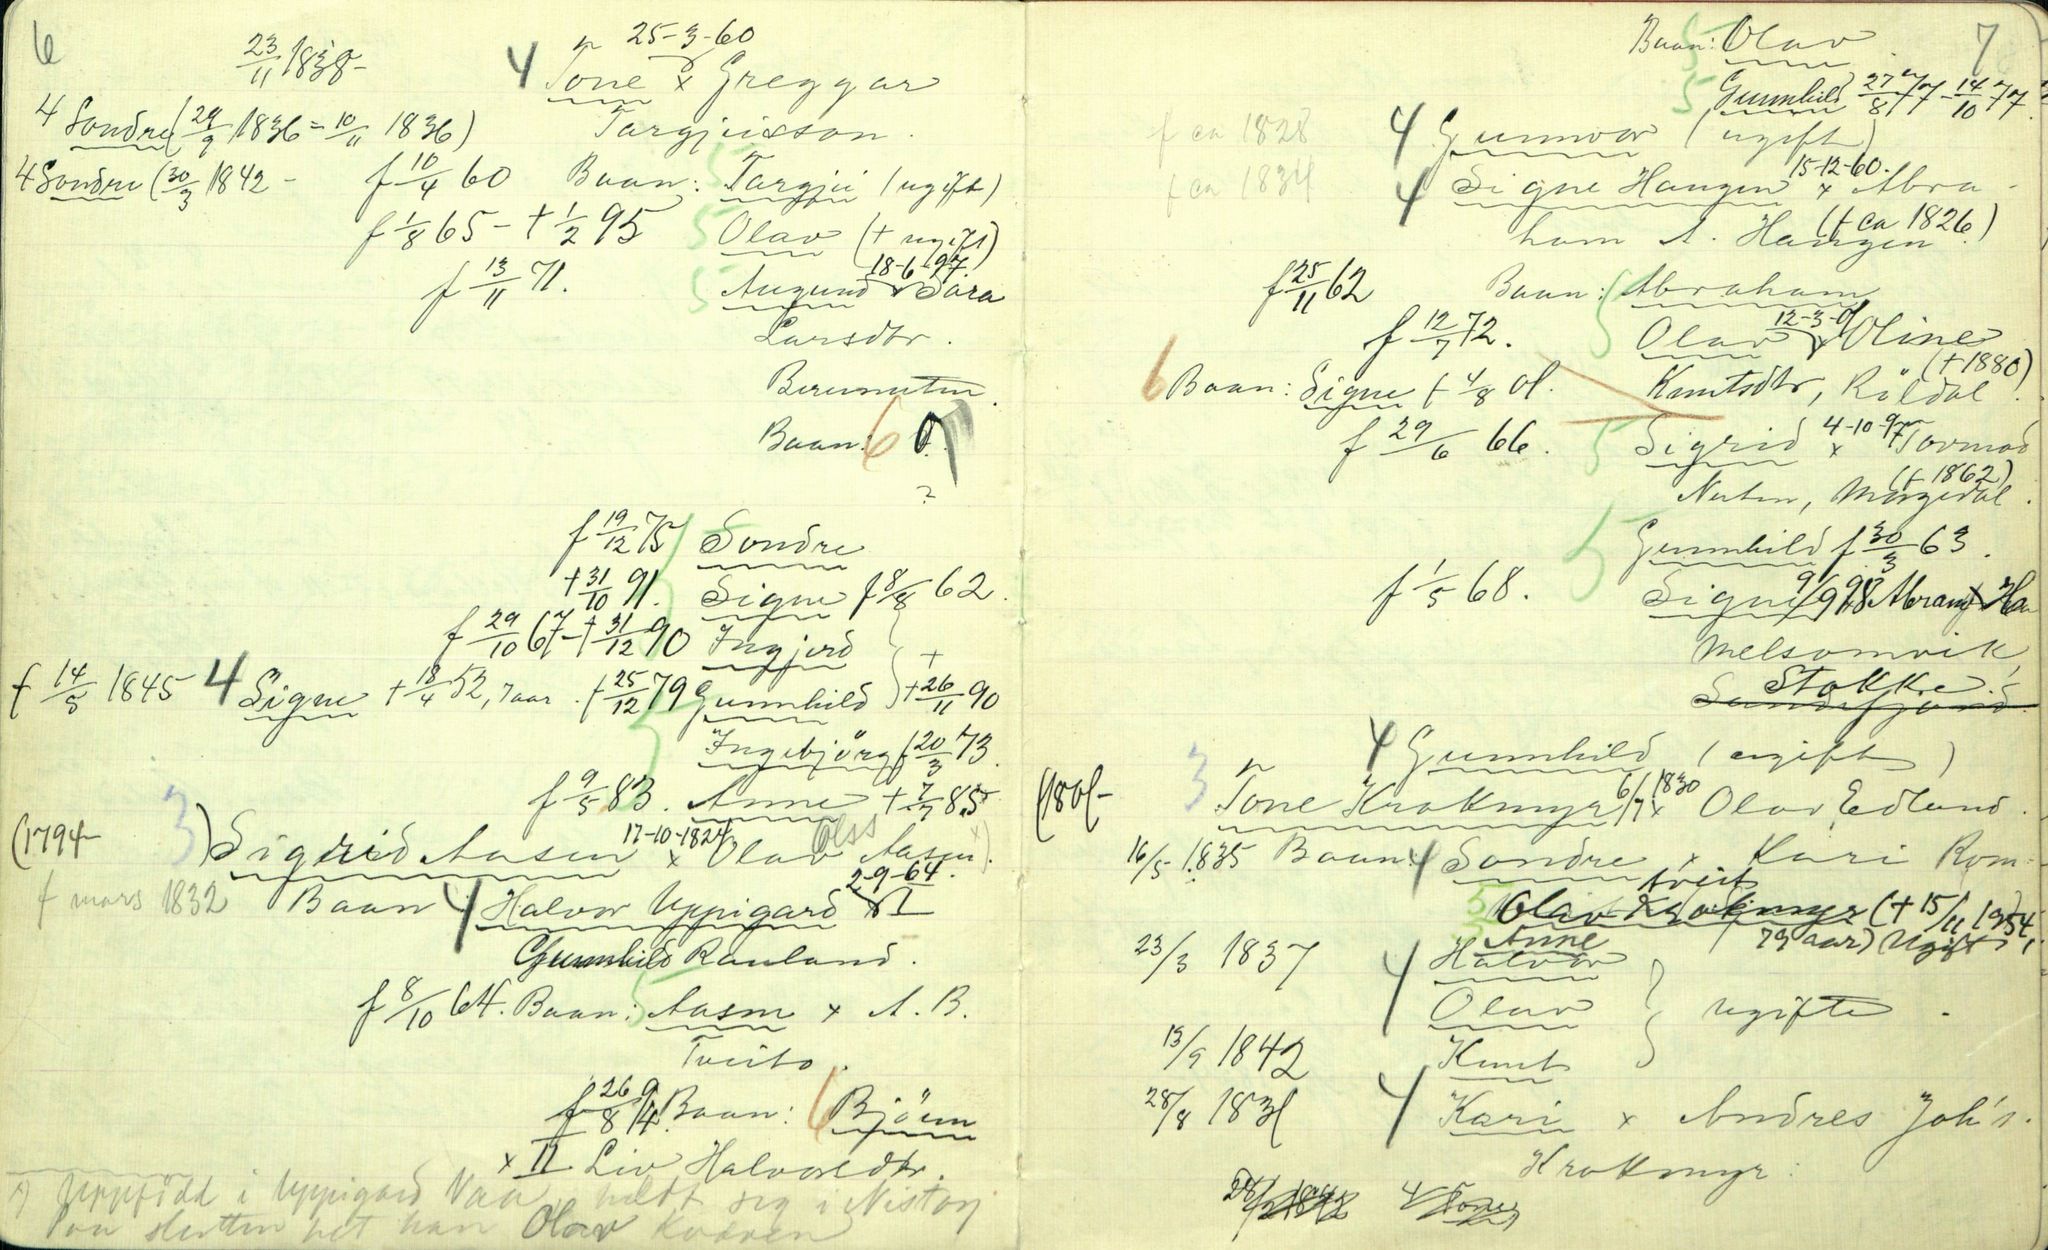 6
23/11 1838-
25-3-60
4 Tone x Greggar
4 Sondre (29/9 1836 = 10/11 1836)
Targjeisson.
4 Sondre (30/3 1842 -
f 10/4 60 Baan: 5 Targjei (ugift)
f 1/8 65 - + 1/2 95 5 Olav (+ ugift)
18-6-97.
f 13/11 71. 5 Augund x Sara
Larsdtr.
Baan: 6
?
f 19/12 75 Sondre
+ 31/10 91. Signe f 8/8 62.
f 29/10 67 - + 31/12 90 Ingjerd
+
f 14/5 1845 4 Signe + 18/4 52, 7 aar. f 25/12 79 Gunnhild + 26/11 90
Ingebjörg f 20/3 73.
f 9/5 83. Anne + 7/7 85
17-10-1824 Olss
(1794- 3) Sigrid Aasen x Olav Aasen x).
2-9-64.
f mars 1832 Baan: 4 Halvor Uppigard x I
Gunnhild Rauland.
f 8/10 64. Baan: 5 Aasne x A. B.
Tveito.
f 26/8 Baan: 6 Björn
x II Liv Halvorsdtr.
x) Uppfödd i Uppigard Vaa, heldt seg i Nistog
Paa slutten het han Olav
7
Baan: 5 Olav
5 Gunnhild 27/8 77 - 14/10 77.
f ca 1828 4 Gunnvor (ugift)
15-12-60.
f ca 1834 4 Signe Haugen x Abra-
(+ ca 1826)
ham A. Haugen.
f 25/11 62 Baan: 5 Abraham
12-3-01
f 12/7 72. Olav x Oline
(+ 1880)
6 Baan: Signe f 4/8 01. Knutsdtr, Röldal.
4-10-97
f 29/6 66. 5 Sigrid x Tormod
(f 1862)
Nuten, Mogedal.
5 Gunnhild f 30/3 63.
f 1/5 68. Signe
Melsomvik,
Stokke.
Sandefjord.
4 Gunnhild (ugift)
6/7 1830
(1801- 3 Tone Krokmyr x Olav Edland.
16/5 1835 Baan: 4 Sondre x Kari Rom-
tveit
5 Olav Krokmyr (+ 15/11 1954,
Anne 79 aar) Ugift.
23/3 1837 4 Halvor
Olav } ugifte.
13/9 1842 Knut
28/8 1831 4 Kari x Andres Joh's.
Krokmyr.
4 Tone